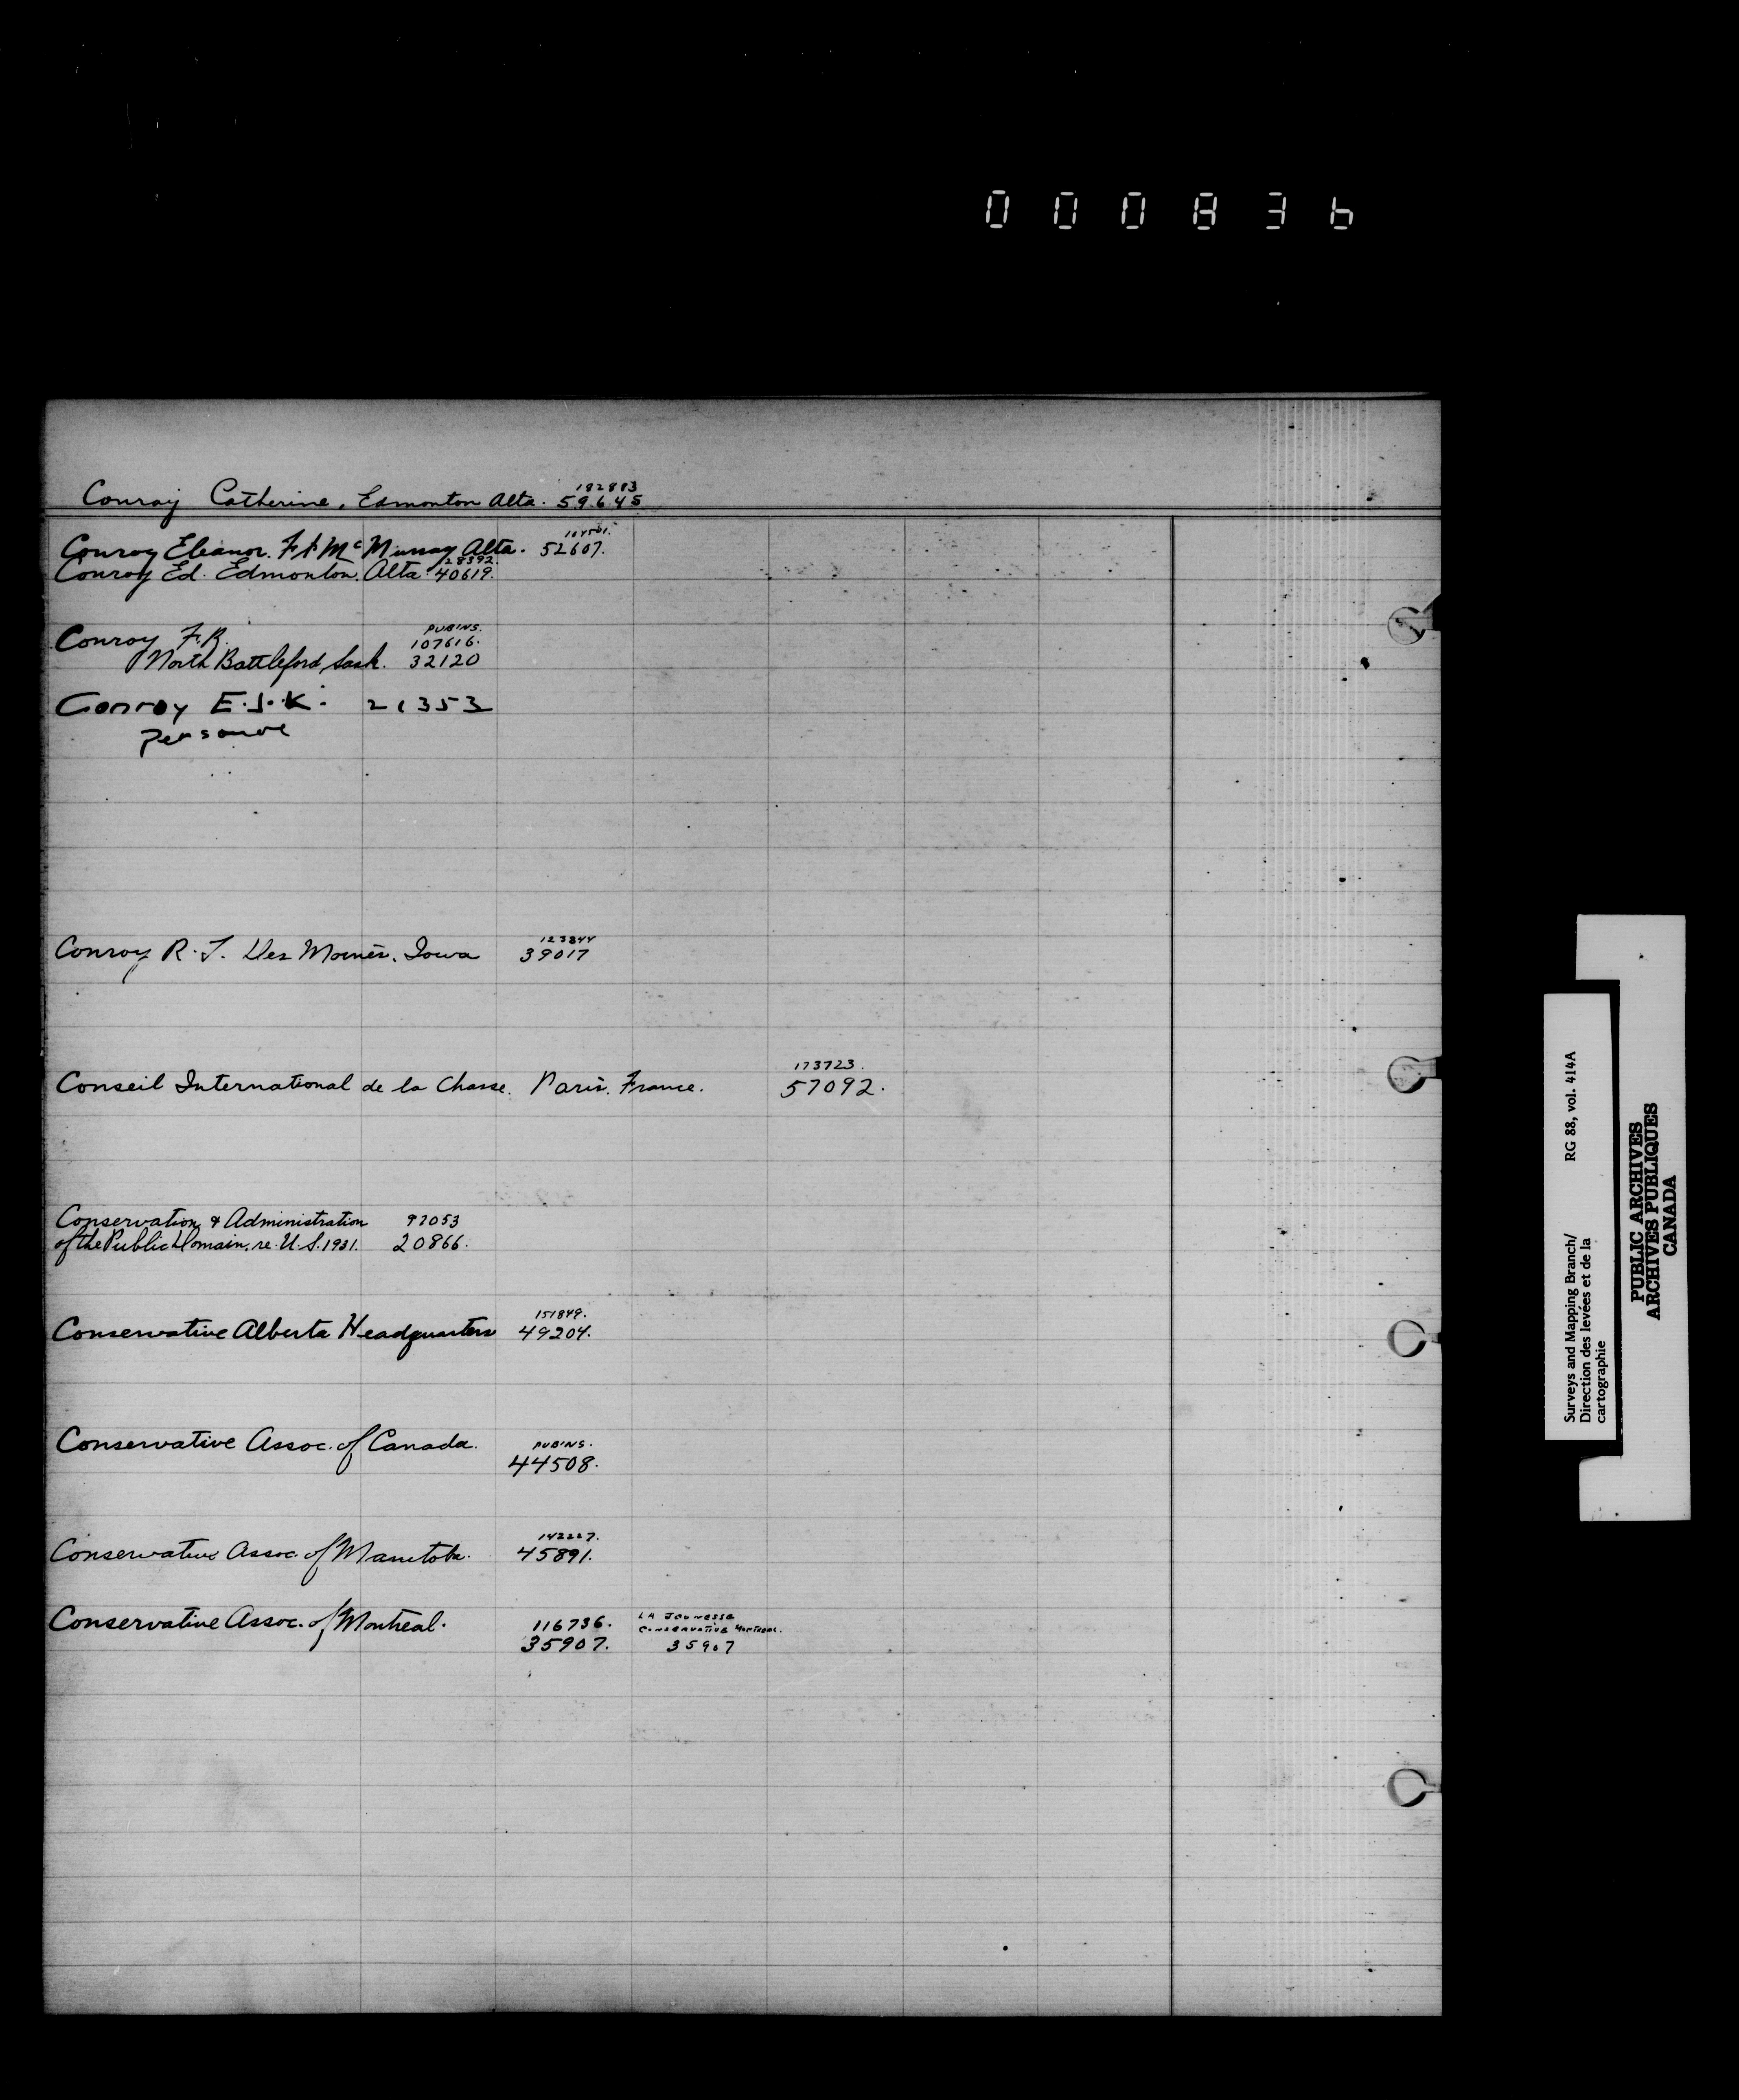 000836
182883
Conroy Catherine, Edmonton Alta. 59645
Conroy Eleanor. Ft McMurray Alta. 52607.
28392.
Conroy Ed. Edmonton. Alta. 40619.
PUBINS.
Conroy F.R. 107616.
North Battleford Sask. 32120
Conroy E.J.K. 21353
Personal
123844
Conroy R.J. Des Moines. Iowa 39017
173723.
Conseil International de la Chasse. Paris. France. 57092.
Conservation & Administration 97053
of the Public Domain. re. U.S. 1931. 20866.
151849.
Conservative Alberta Headquarters 49204.
Conservative Assoc. of Canada. PUBINS.
44508.
142227.
Conservative Assoc. of Manitoba. 45891.
Conservative Assoc. of Montreal. 116736. LA JEUNESSE
CONSERVATIVE MONTREAL.
35907. 35907
Surveys and Mapping Branch/ RG 88, vol. 414A
Direction des levées et de la
cartographie
PUBLIC ARCHIVES
ARCHIVES PUBLIQUES
CANADA